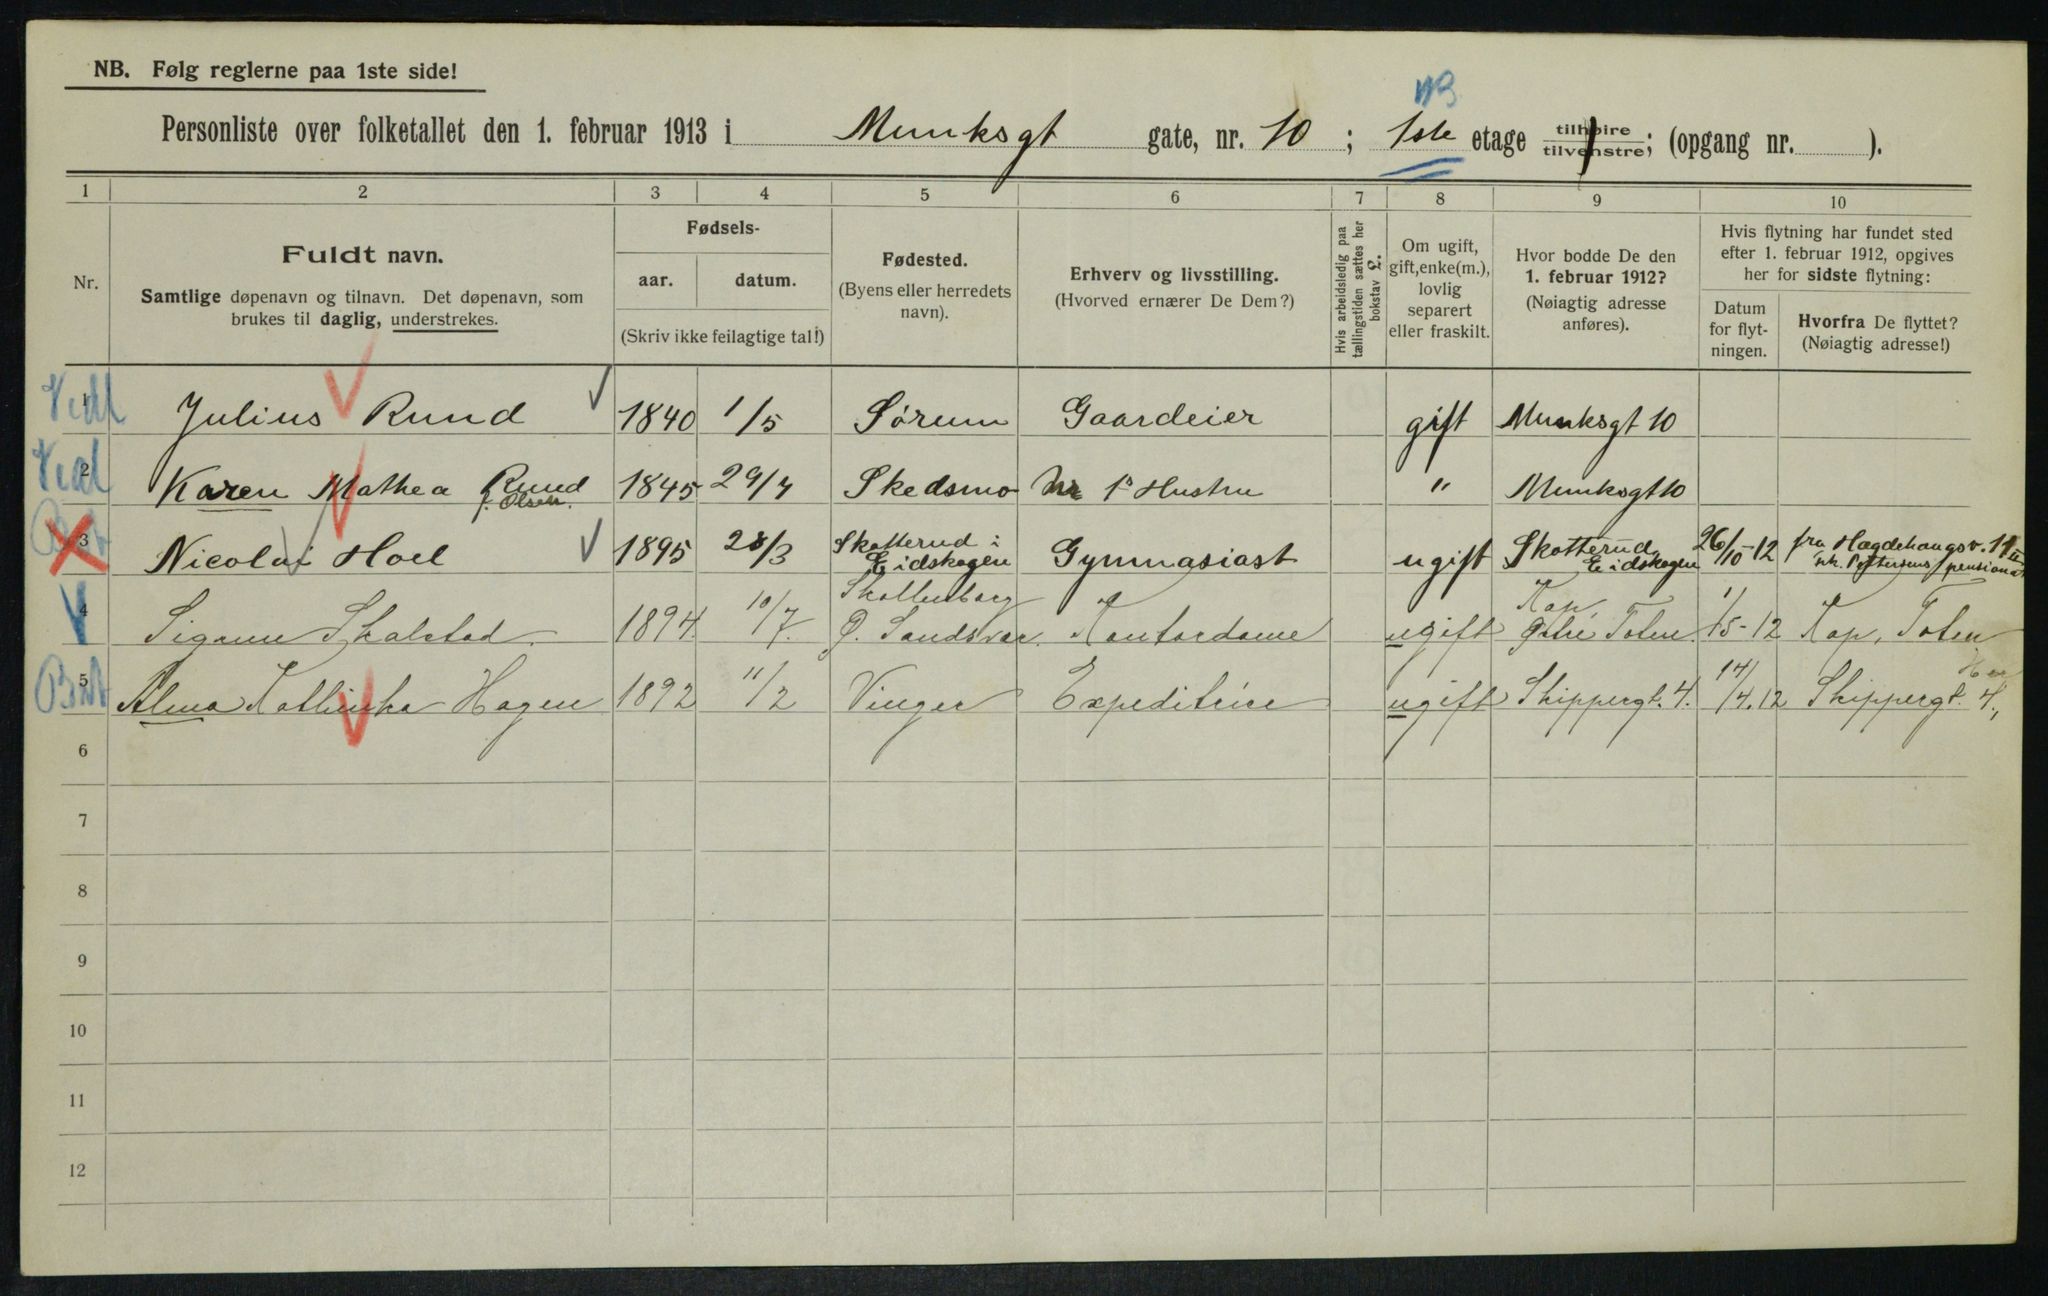 NB. Følg reglerne paa 1ste side!
NB
Personliste over folketallet den 1. februar 1913 i Munksgt gate, nr. 10; 1ste etage tilhøire tilvenstre; (opgang nr. ).
1 2 3 4 5 6 7 8 9 10
Nr.
Fuldt navn.
Samtlige døpenavn og tilnavn. Det døpenavn, som
brukes til daglig, understrekes.
Fødsels-
aar. datum.
(Skriv ikke feilagtige tal!)
Fødested.
(Byens eller herredets
navn).
Erhverv og livsstilling.
(Hvorved ernærer De Dem?)
Hvis arbeidsledig paa
tællingstiden sættes her
bokstav L.
Om ugift,
gift, enke(m.),
lovlig
separert
eller fraskilt.
Hvor bodde De den
1. februar 1912?
(Nøiagtig adresse
anføres).
Hvis flytning har fundet sted
efter 1. februar 1912, opgives
her for sidste flytning:
Datum
for flyt-
ningen.
Hvorfra De flyttet?
(Nøiagtig adresse!)
1 Julius Rund 1840 1/5 Sørum Gaardeier gift Munksgt 10
2 Karen Mathea Rund f. Olsen. 1845 29/7 Skedsmo Nr 1s Hustru " Munksgt 10
3 Nicolai Hoel 1895 28/3 Skotterud i Eidskogen Gymnasiast ugift Skotterud, Eidskogen 26/10-12 fra Hægdehaugsv. 11 II pensionat
4 Sigrun Skalstad 1894 10/7. Skollenborg Ø. Sandsvær. Kontordame ugift Kap, Østre Toten. 1/5-12 Kap, Toten
5 Alma Kathinka Hagen 1892 11/2 Vinger Expeditrice ugift Skippergt. 4. 14/4.12 Skippergt. 4.,
6
7
8
9
10
11
12